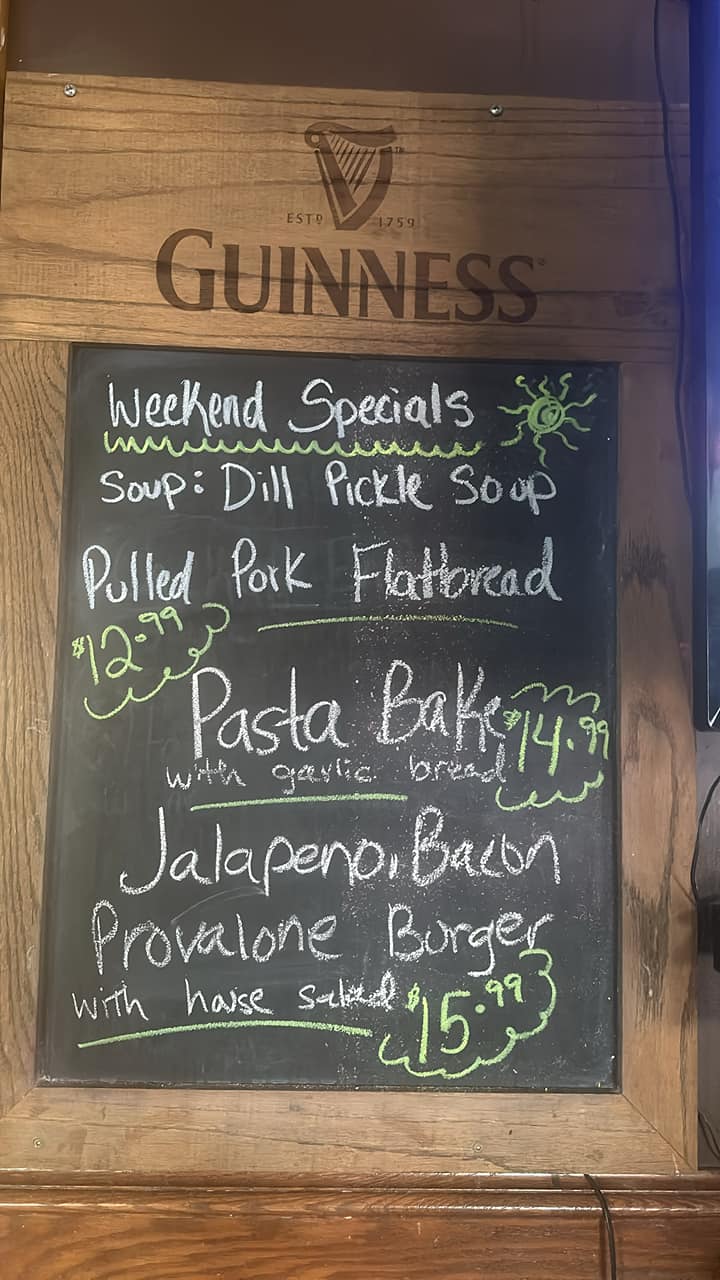 ESTD 1759
GUINNESS
Weekend Specials
Soup: Dill Pickle Soup
Pulled Pork Flatbread
$12.99
Pasta Bake
with garlic bread
$14.99
Jalapeno, Bacon
Provalone Burger
with house salad
$15.99